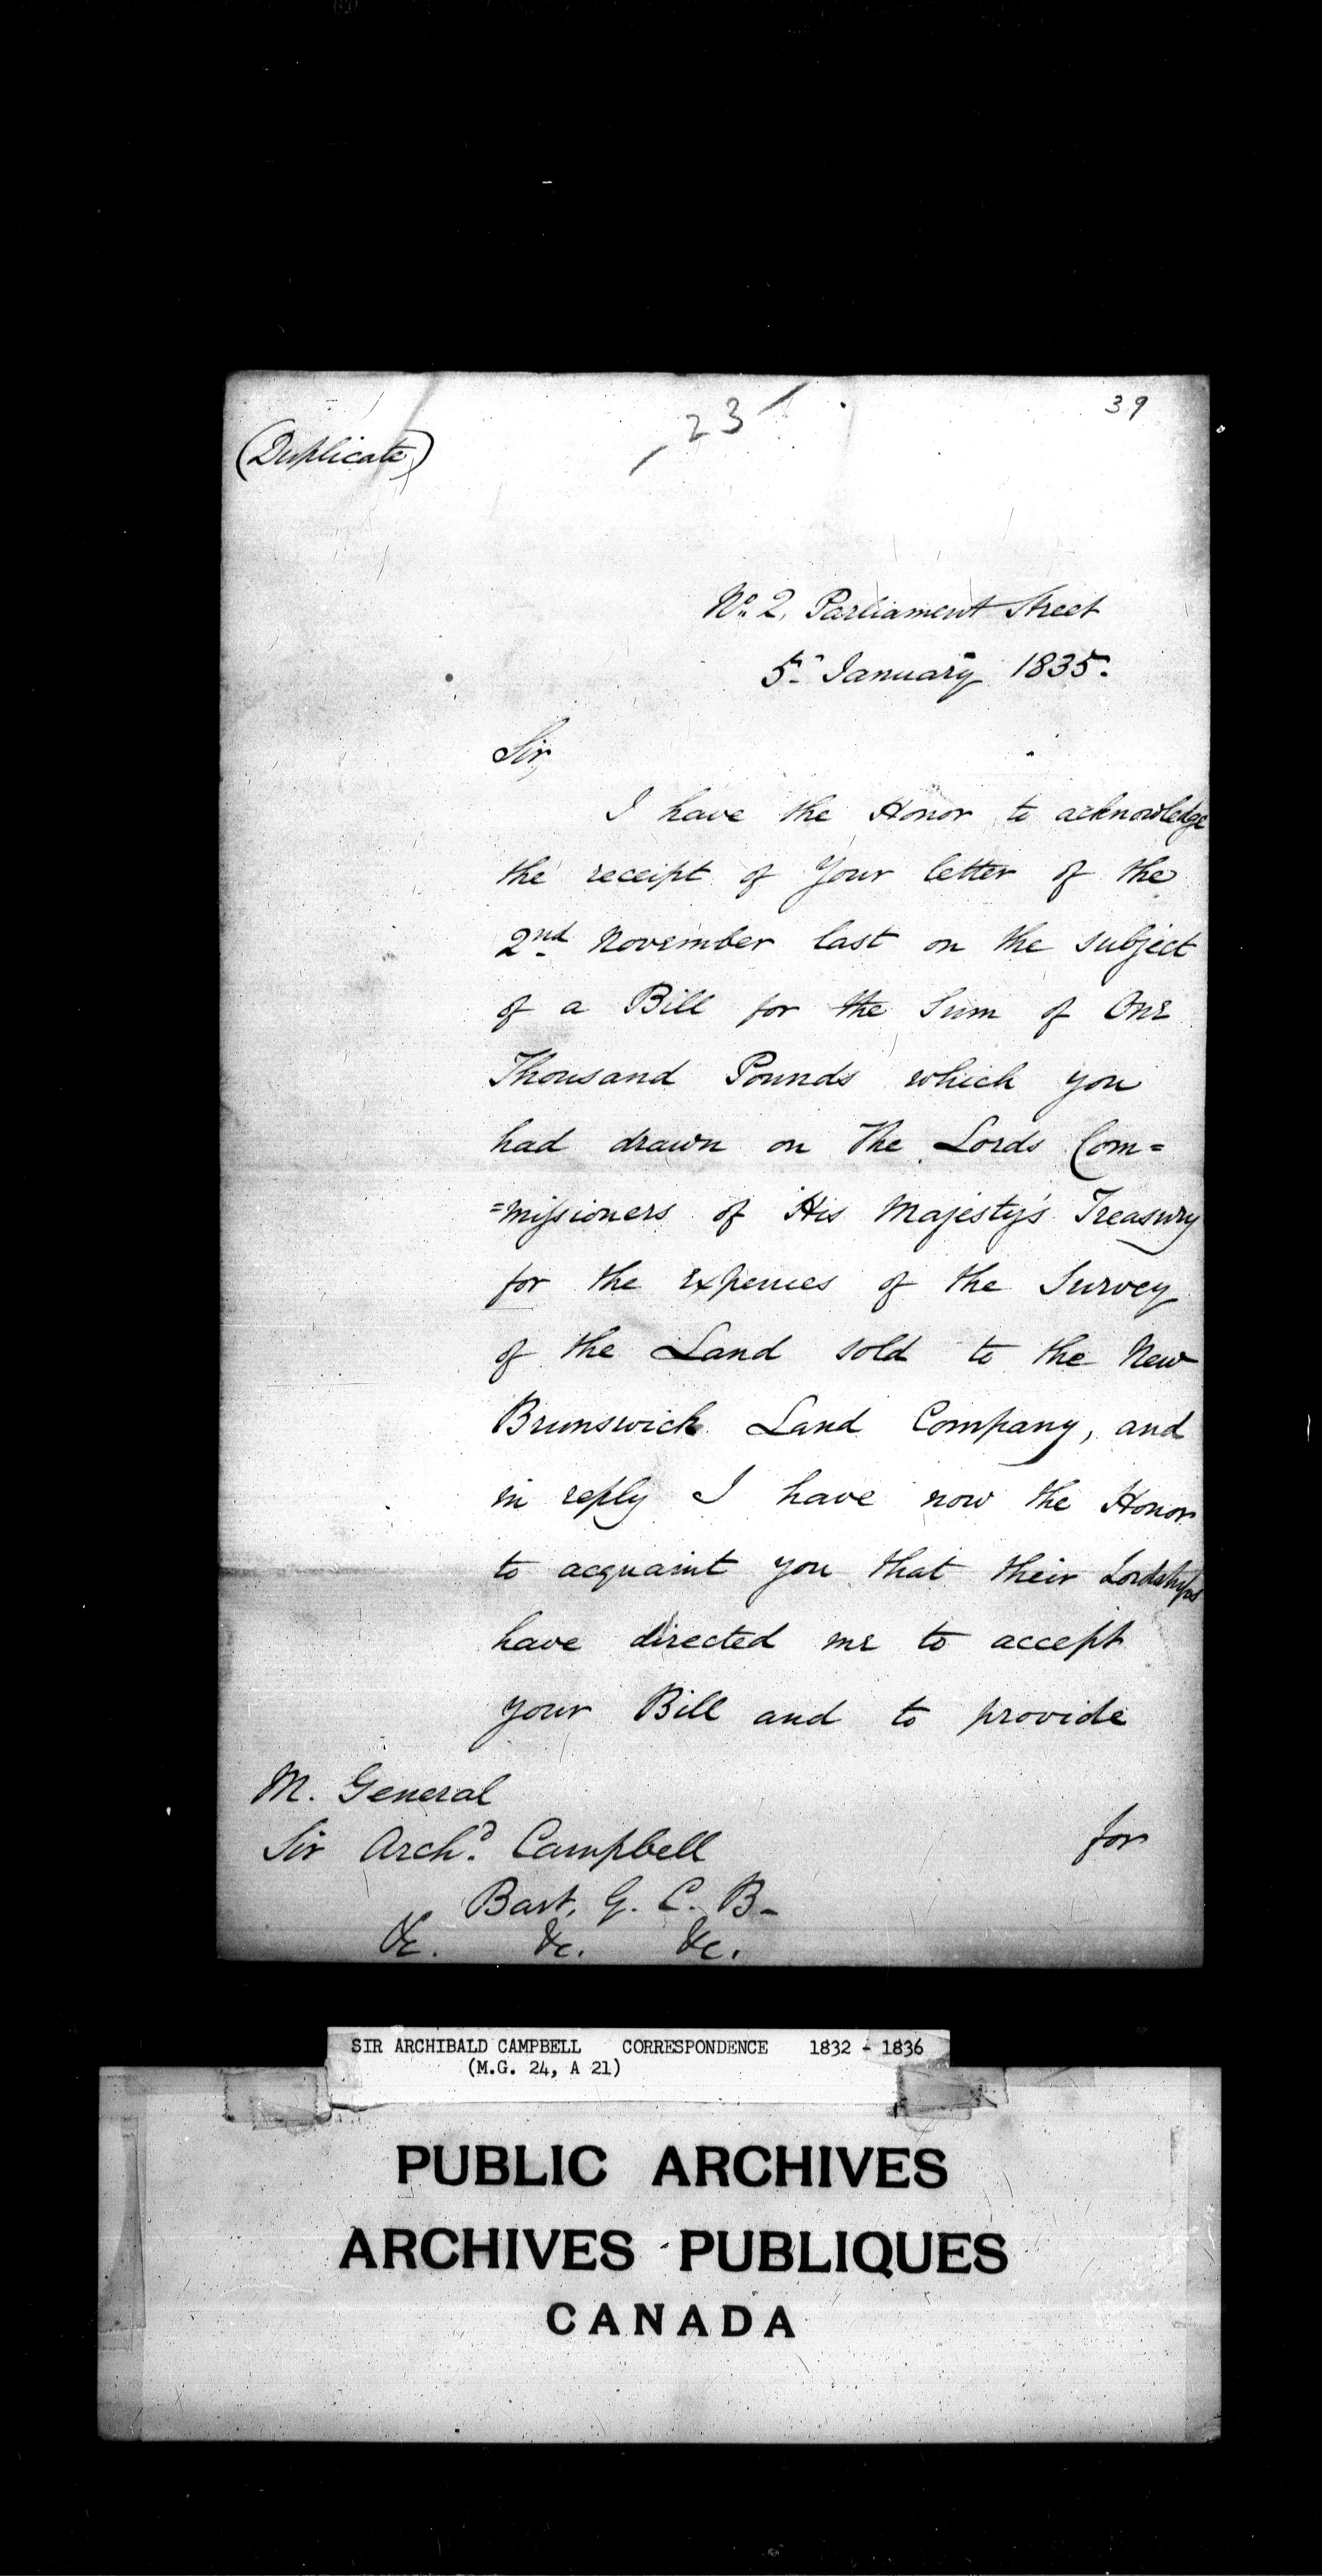 39
23
(Duplicate)
No. 2, Parliament Street
5th January 1835.
Sir,
I have the Honor to acknowledge
the receipt of Your letter of the
2nd November last on the subject
of a Bill for the Sum of One
Thousand Pounds which you
had drawn on The Lords Com=
=missioners of His Majesty's Treasury
for the expences of the Survey
of the Land sold to the New
Brunswick Land Company, and
in reply I have now the Honor
to acquaint you that their Lordships
have directed me to accept
your Bill and to provide
for
M. General
Sir Archd. Campbell
Bart, G. C. B-
&c. &c. &c.
SIR ARCHIBALD CAMPBELL CORRESPONDENCE 1832 - 1836
(M.G. 24, A 21)
PUBLIC ARCHIVES
ARCHIVES PUBLIQUES
CANADA